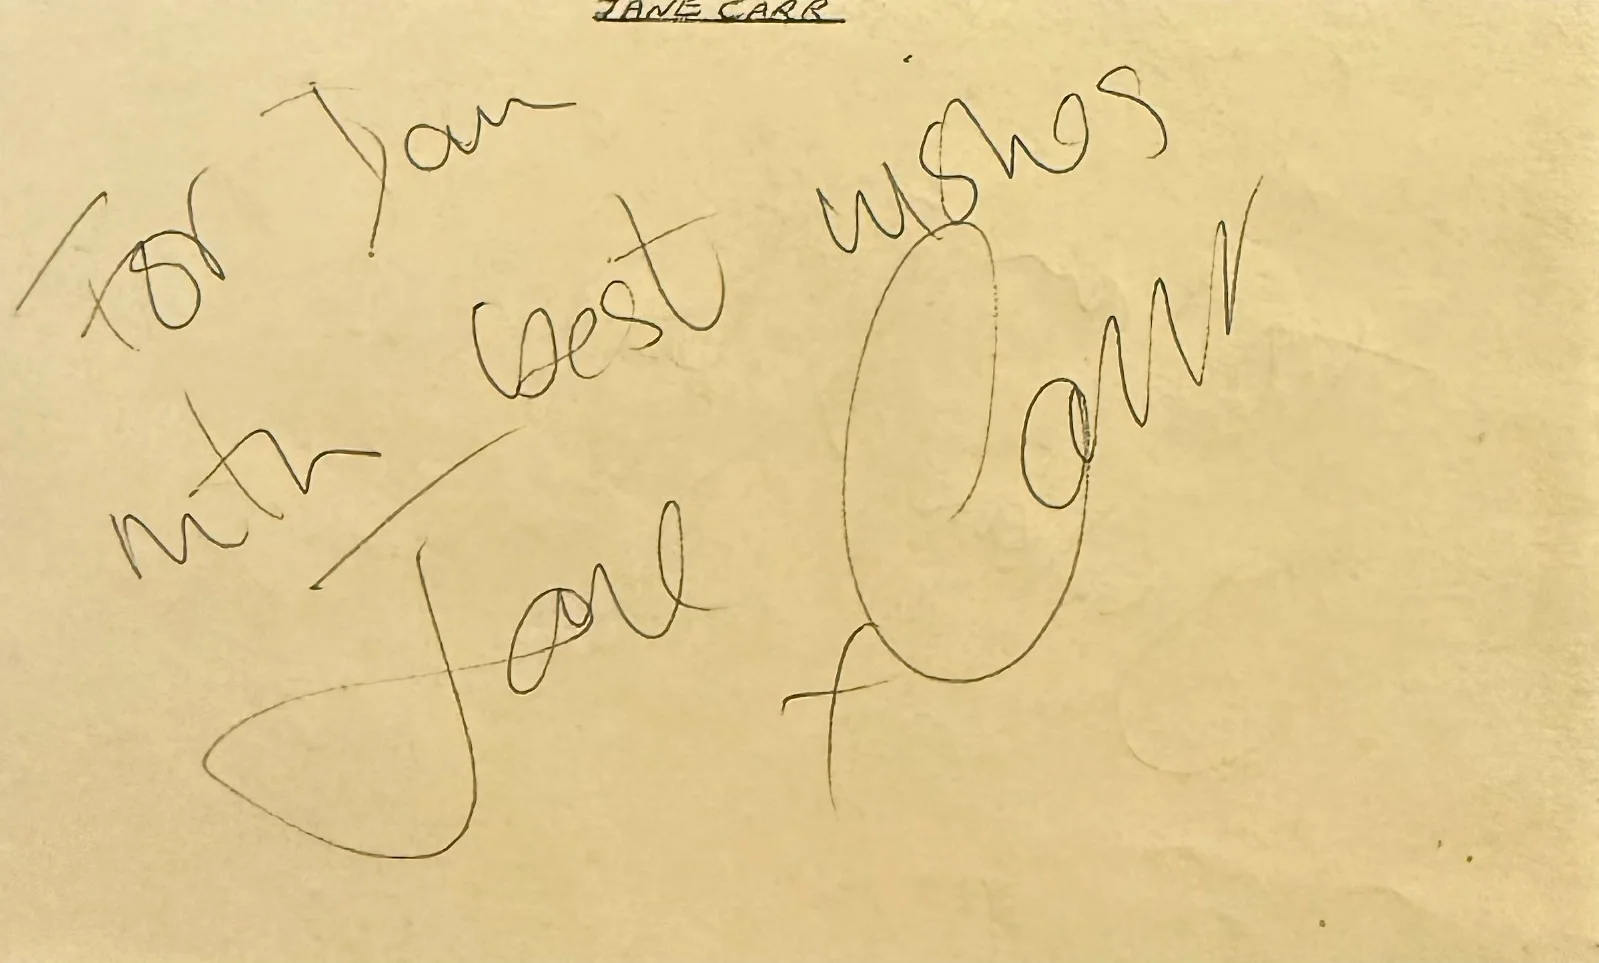 JANE CARR
For Dan
with best wishes
Jane Carr
x